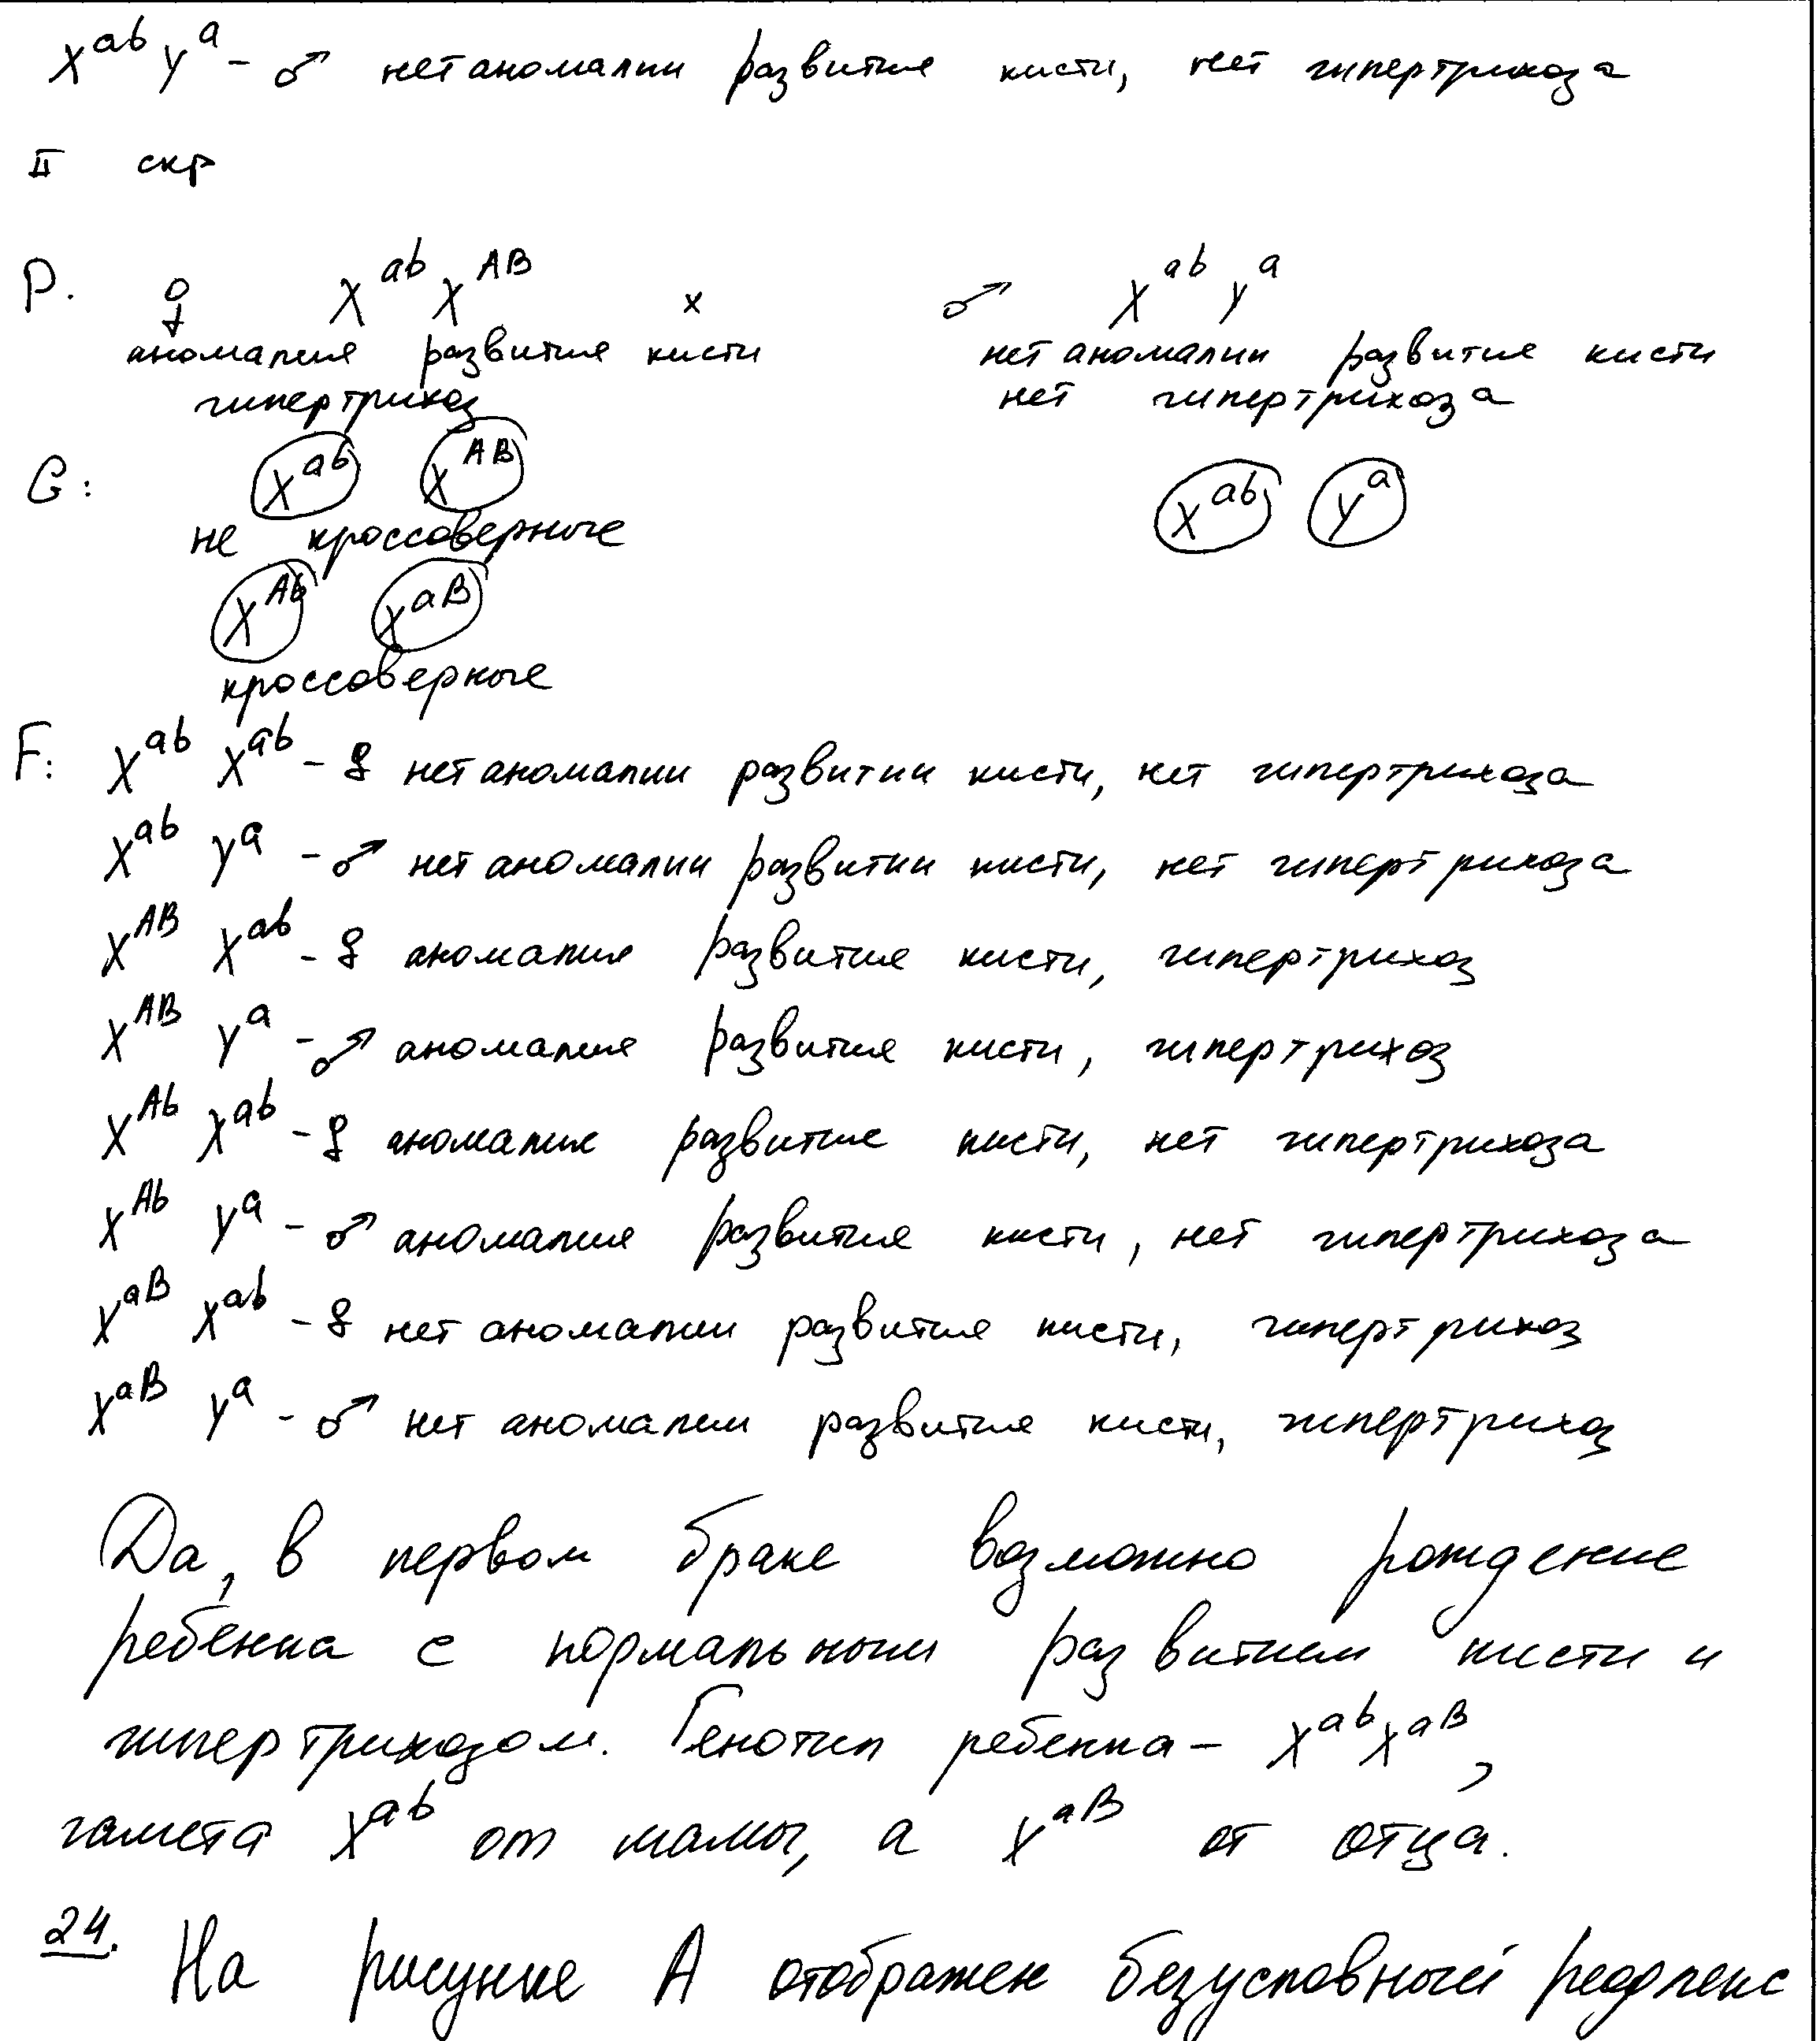 X^ab Y^a - ♂ нет аномалии развитие кисти, нет гипертрихоза
II скр
P. ♀ X^ab X^AB × ♂ X^ab Y^a
аномалия развитие кисти нет аномалии развитие кисти
гипертрихоз нет гипертрихоза
G: X^ab X^AB X^ab Y^a
не кроссоверные
X^Ab X^aB
кроссоверные
F: X^ab X^ab - ♀ нет аномалии развитии кисти, нет гипертрихоза
X^ab Y^a - ♂ нет аномалии развитии кисти, нет гипертрихоза
X^AB X^ab - ♀ аномалия развитие кисти, гипертрихоз
X^AB Y^a - ♂ аномалия развитие кисти, гипертрихоз
X^Ab X^ab - ♀ аномалия развитие кисти, нет гипертрихоза
X^Ab Y^a - ♂ аномалия развитие кисти, нет гипертрихоза
X^aB X^ab - ♀ нет аномалии развитие кисти, гипертрихоз
X^aB Y^a - ♂ нет аномалии развитие кисти, гипертрихоз
Да, в первом браке возможно рождение
ребенка с нормальным развитием кисти и
гипертрихозом. Генотип ребенка - X^ab X^aB,
гамета X^ab от мамы, а X^aB от отца.
24. На рисунке А отображен безусловный рефлекс